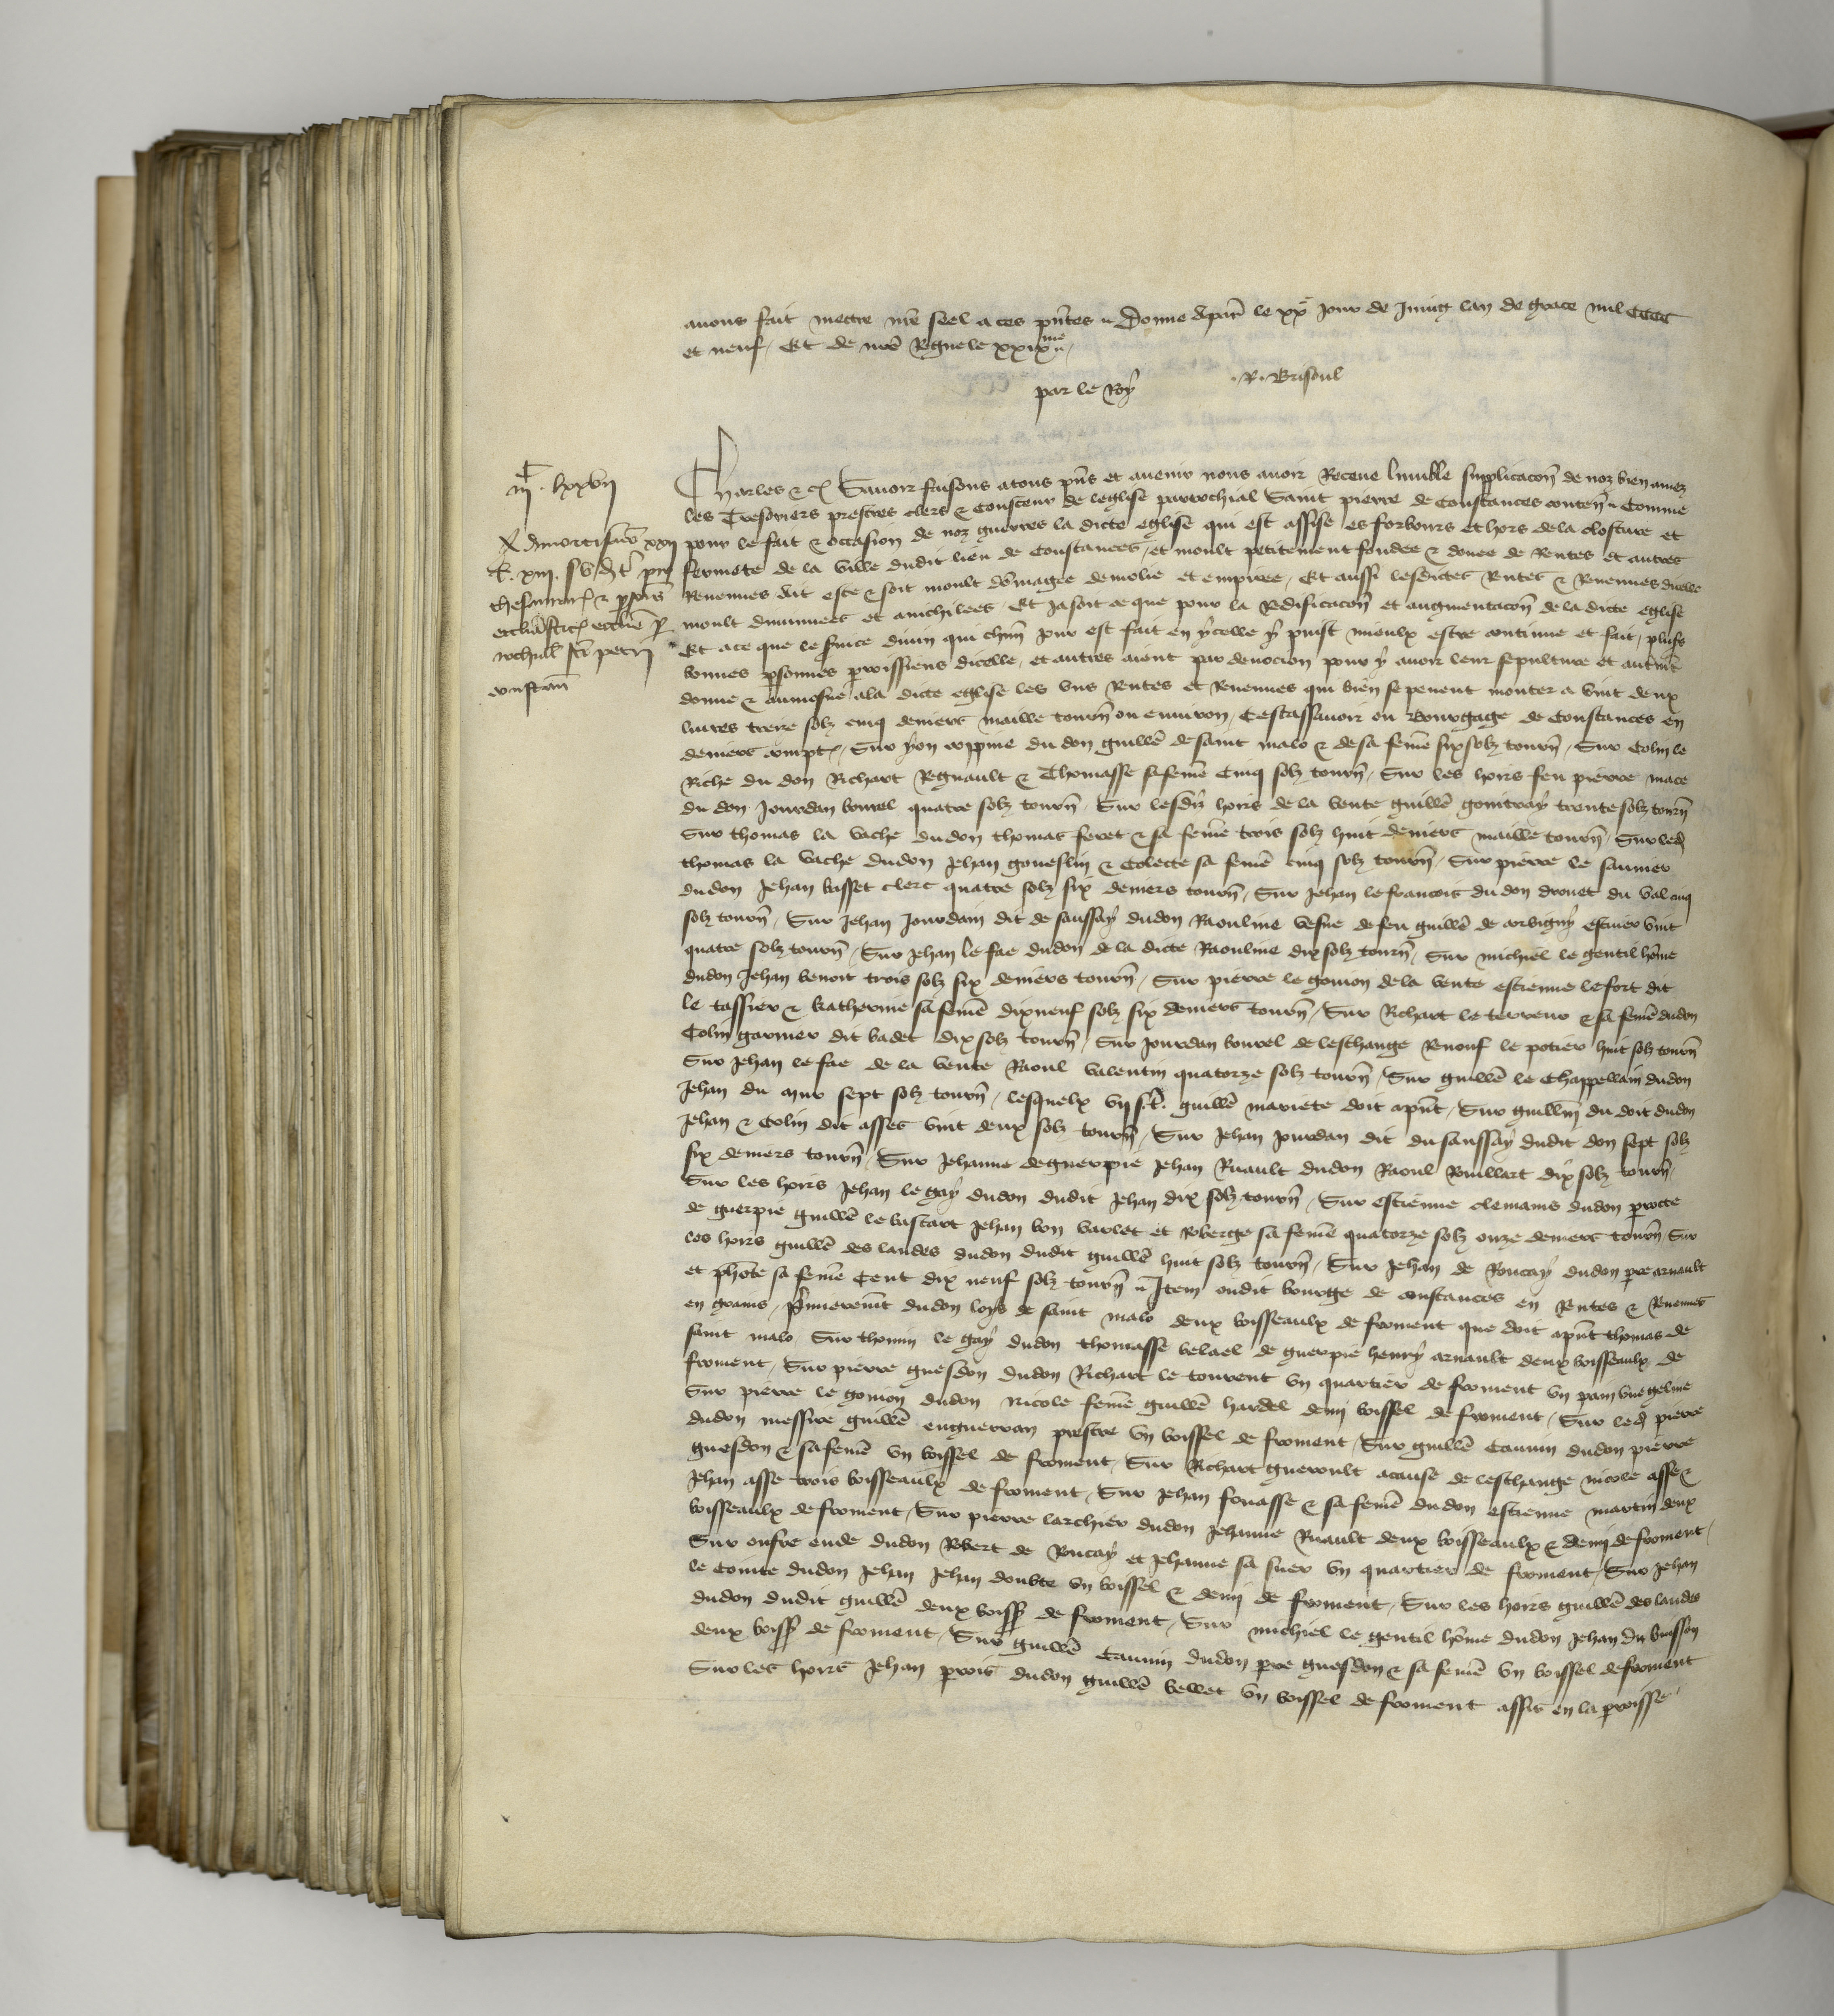 auons fait mettre nr̃e seel a ces pñtes Donne a par̃ le xxe jour de Juing lan de grace mil cccc
et neuf / Et de nr̃e Regne le xxixme
par le Roy R. Brisoul
iijc lxxvij
Charles &c Sauoir faisons a tous pñs et auenir nous auoir Receue lumble supplicacoñ de noz bien amez
les Tresoriers prestres clers & de leglise parrochial Saint pierre de Constances conteñ Comme
pour le fait & occasion de noz guerres la dicte eglise qui est assise es forbours et hors de la closture et
fermete de la ville dudit lieu de Constances / et moult petitement fondee & douee de Rentes et autres
Reuenues ait este & soit moult dom̃agee demolie et empiree / Et aussi lesdictes Rentes & Reuenues dicelle
moult diminuees et anichilees / Et ja soit ce que pour la Redificacoñ et augmentacoñ de la dicte eglise
Et a ce que le fuice diuin qui chũn jour est fait en ycelle y puist mieulx estre continue et fait / plus̃s
bonnes p̱sonnes p̱roissiens dicelle / et autres aient par deuocion pour y auoir leur sepulture et autrem̃t
donne & aumosne a la dicte eglise les vns Rentes et Reuenues qui bien se peuent monter a vint deux
liures treze solz cinq deniers maille tourñ ou enuiron / Cestassauoir ou Bourgage de Constances en
deniers compt / Sur yon coppine du don guill̃e de saint malo & de sa fem̃e six solz tourñ / Sur Colin le
Riche du don Richart Regnault & Thomasse sa fem̃e Cinq solz tourñ / Sur les hoirs feu pierre mace
du don Jourdan bourel quatre solz tourñ / Sur lesdiz hoirs de la vente guill̃e gouitray trente solz tourñ
Sur thomas la vache du don thomas feret & sa fem̃e trois solz huit deniers maille tourñ / Sur led
thomas la vache du don Jehan goueslin & Colecte sa fem̃e cinq solz tourñ / Sur pierre le saunier
du don Jehan basset clerc quatre solz six deniers tourñ / Sur Jehan le francois du don drouet du val cinq
solz tourñ / Sur Jehan Jourdain dit de saussay du don Raouline vefue de feu guill̃e de corbigny escuier vint
quatre solz tourñ / Sur Jehan le fae du don de la dicte Raouline dix solz tourñ / Sur michiel le gentil hõme
du don Jehan benoit trois solz six deniers tourñ / Sur pierre le gouion de la vente estienne lefort dit
le tassier & katherine sa fem̃e dixneuf solz six deniers tourñ / Sur Richart le terreur & sa fem̃e du don
Colin garnier dit badet dix solz tourñ / Sur jourdan bourel de leschange Renouf le potier huit solz tourñ
Sur Jehan le fae de la vente Raoul valentin quatorze solz tourñ / Sur guill̃e le Chappellain du don
Jehan du mur sept solz tourñ / lesquelx vij s. t. guill̃e mariete doit apñt / Sur guillm̃ du doit du don
Jehan & Colin dit asses vint deux solz tourñ / Sur Jehan jourdan dit du saussay dudit don sept solz
six deniers tourñ / Sur Jehanne deguerpie Jehan Ruault du don Raoul Rouillart dix solz tourñ /
Sur les hoirs Jehan le gay du don dudit Jehan dix solz tourñ / Sur estienne clemans du don p̱rrete
de guerpie guill̃e le bastart Jehan bon varlet et Roberge sa fem̃e quatorze solz onze deniers tourñ Sur
les hoirs guill̃e des landes du don dudit guill̃e huit solz tourñ / Sur Jehan de Roucay du don p̱re arnault
et ph̃ote sa fem̃e Cent dix neuf solz tourñ Item oudit bourge de constances en Rentes & Reuenues
en grains / p̃mierem̃t du don loys de saint malo deux boisseaulx de froment que doit apñt thomas de
saint malo Sur thomin le gay du don thomasse belael de guerpie henry arnault deux boisseaulx de
froment / Sur pierre guesdon du don Richart le tourent vn quartier de froment vn pain vne geline
Sur pierre le gouion du don nicole fem̃e guill̃e hardel demj boissel de froment / Sur led pierre
du don messire guill̃e enguerran prestre vn boissel de froment / Sur guill̃e Cauuin du don pierre
guesdon & sa fem̃e vn boissel de froment / Sur Richart gueroult a cause de leschange nicole asse &
Jehan asse trois boisseaulx de froment / Sur Jehan fouasse & sa fem̃e du don estienne martin deux
boisseaulx de froment / Sur pierre larchier du don Jehanne Ruault deux boisseaulx & demj de froment /
Sur onfre eude du don Robert de Roucay et Jehanne sa suer vn quartier de froment / Sur Jehan
le Conte du don Jehan Jehan doubte vn boissel & demj de froment / Sur les hoirs guill̃e des landes
du don dudit guill̃e deux boiss̃ de froment / Sur michiel le gentil hõme du don Jehan du buisson
deux boiss̃ de froment / Sur guill̃e Cauuin du don p̱re guesdon & sa fem̃e vn boissel de froment
Sur les hoirs Jehan p̱rois du don guill̃e bellet vn boissel de froment assis en la p̱roisse
Admortisam̃ xxij
l. xiij. s. v. d. t. pro
thesaurar & p̱sonis
ecclĩastic ecclĩe p̱
rochial sc̃i petri
constam̃